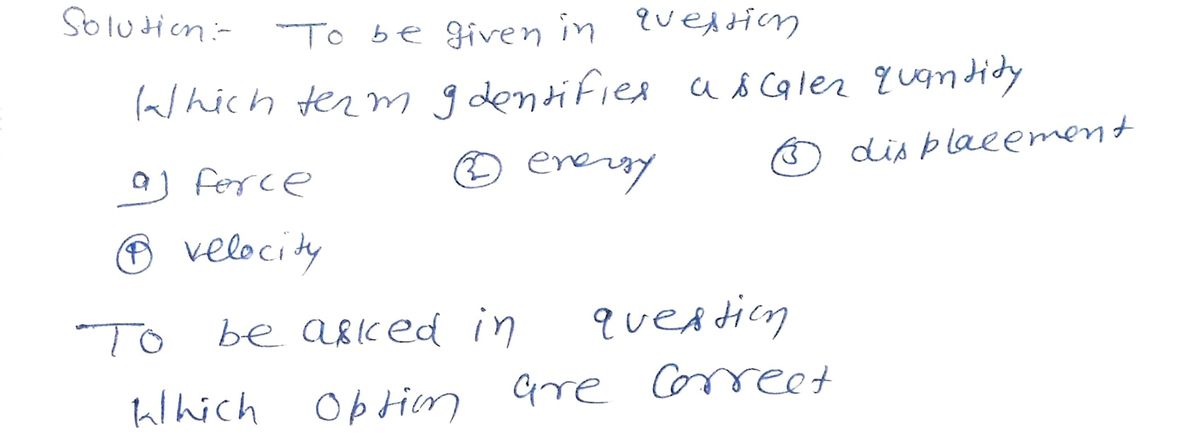 Solution:- To be given in question
Which term Identifies a scaler quantity
a) force ② energy ③ displacement
④ velocity
To be asked in question
Which option are correct